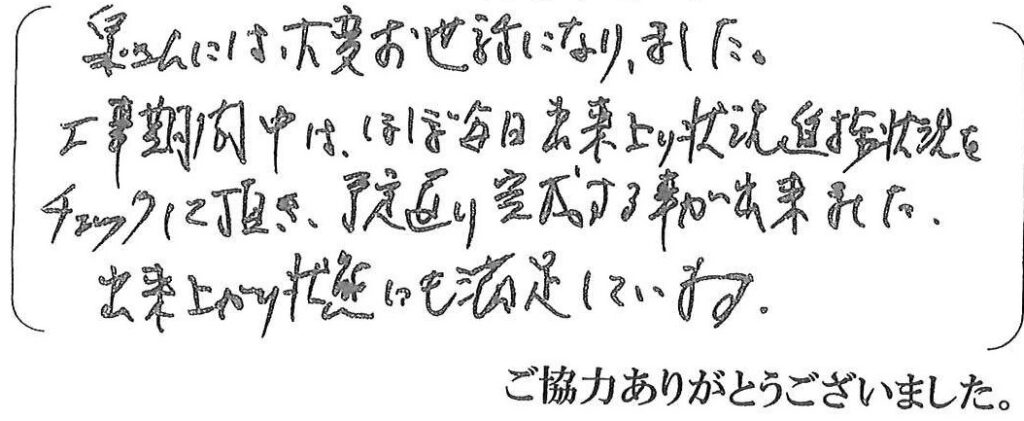 泉さんには、大変お世話になりました。
工事期間中は、ほぼ毎日出来上り状況進捗状況を
チェックして頂き、予定通り完成する事が出来ました。
出来上がり状態にも満足しています。
ご協力ありがとうございました。